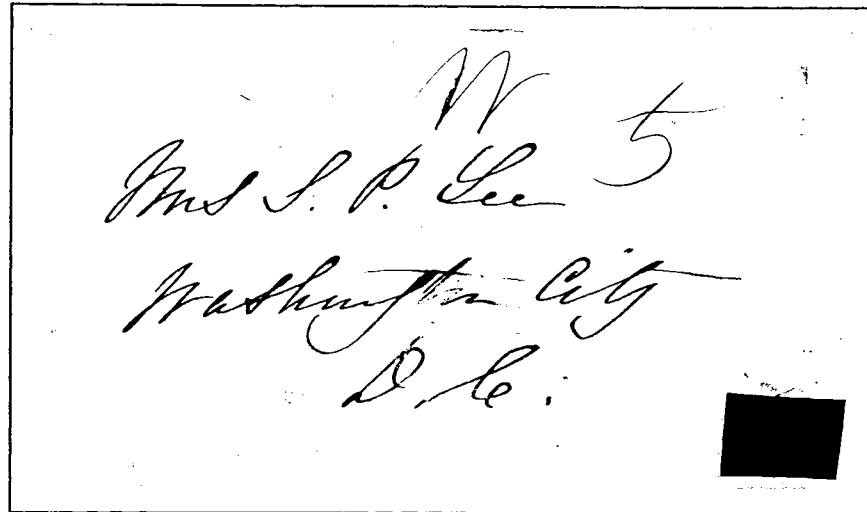 W
5
Mrs S. P. Lee
Washington City
D. C.